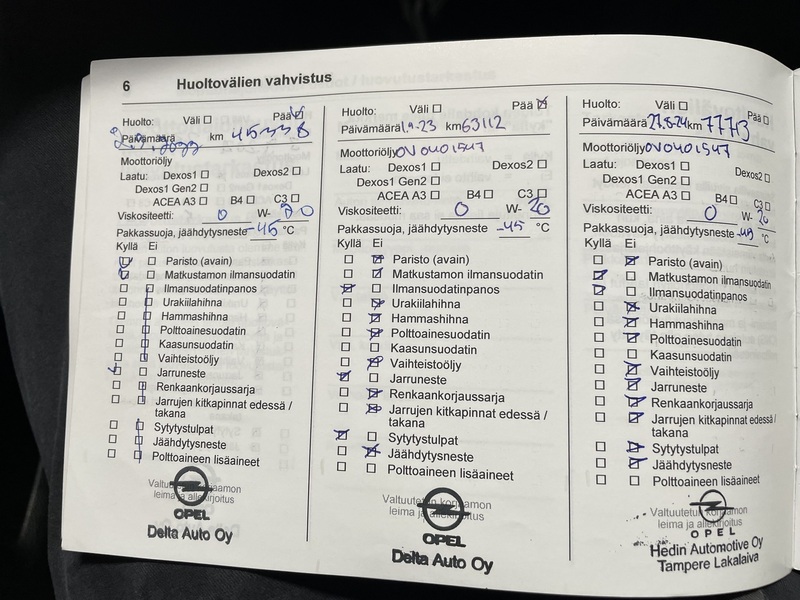 6 Huoltovälien vahvistus
Huolto: Väli Pää
Päivämäärä km 45338
Moottoriöljy
Laatu: Dexos1 Dexos2
Dexos1 Gen2
ACEA A3 B4 C3
Viskositeetti: 0 W- 20
Pakkassuoja, jäähdytysneste -45 °C
Kyllä Ei
Paristo (avain)
Matkustamon ilmansuodatin
Ilmansuodatinpanos
Urakiilahihna
Hammashihna
Polttoainesuodatin
Kaasunsuodatin
Vaihteistoöljy
Jarruneste
Renkaankorjaussarja
Jarrujen kitkapinnat edessä /
takana
Sytytystulpat
Jäähdytysneste
Polttoaineen lisäaineet
Valtuutetun korjaamon
leima ja allekirjoitus
OPEL
Delta Auto Oy
Huolto: Väli Pää
Päivämäärä 1.9-23 km 63112
Moottoriöljy OV0401547
Laatu: Dexos1 Dexos2
Dexos1 Gen2
ACEA A3 B4 C3
Viskositeetti: 0 W- 20
Pakkassuoja, jäähdytysneste -45 °C
Kyllä Ei
Paristo (avain)
Matkustamon ilmansuodatin
Ilmansuodatinpanos
Urakiilahihna
Hammashihna
Polttoainesuodatin
Kaasunsuodatin
Vaihteistoöljy
Jarruneste
Renkaankorjaussarja
Jarrujen kitkapinnat edessä /
takana
Sytytystulpat
Jäähdytysneste
Polttoaineen lisäaineet
Valtuutetun korjaamon
leima ja allekirjoitus
OPEL
Delta Auto Oy
Huolto: Väli Pää
Päivämäärä 27.8-24 km 77713
Moottoriöljy OV0401547
Laatu: Dexos1 Dexos2
Dexos1 Gen2
ACEA A3 B4 C3
Viskositeetti: 0 W- 20
Pakkassuoja, jäähdytysneste °C
Kyllä Ei
Paristo (avain)
Matkustamon ilmansuodatin
Ilmansuodatinpanos
Urakiilahihna
Hammashihna
Polttoainesuodatin
Kaasunsuodatin
Vaihteistoöljy
Jarruneste
Renkaankorjaussarja
Jarrujen kitkapinnat edessä /
takana
Sytytystulpat
Jäähdytysneste
Polttoaineen lisäaineet
Valtuutetun korjaamon
leima ja allekirjoitus
OPEL
Hedin Automotive Oy
Tampere Lakalaiva